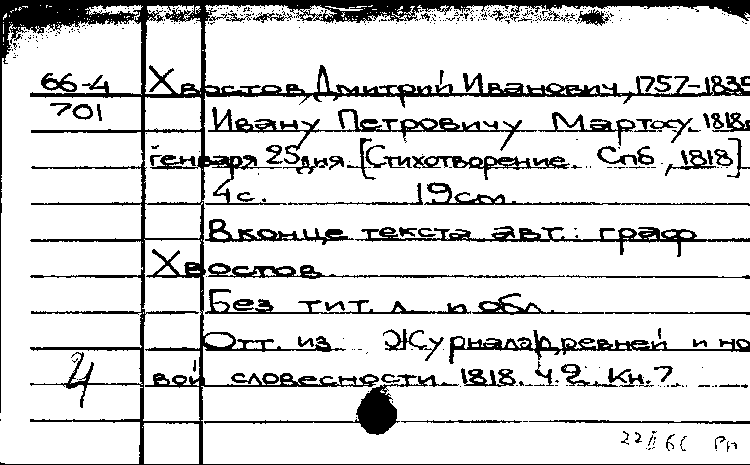 66-4 Хвостов, Дмитрий Иванович, 1757-1835
701 Ивану Петровичу Мартосу. 1818
генваря 25 дня. [Стихотворение. Спб, 1818]
4 с. 19 см.
В конце текста авт.: граф
Хвостов.
Без тит. л. и обл.
Отт. из Журнала древней и но
4 вой словесности. 1818. Ч. 2. Кн. 7
22 II 66